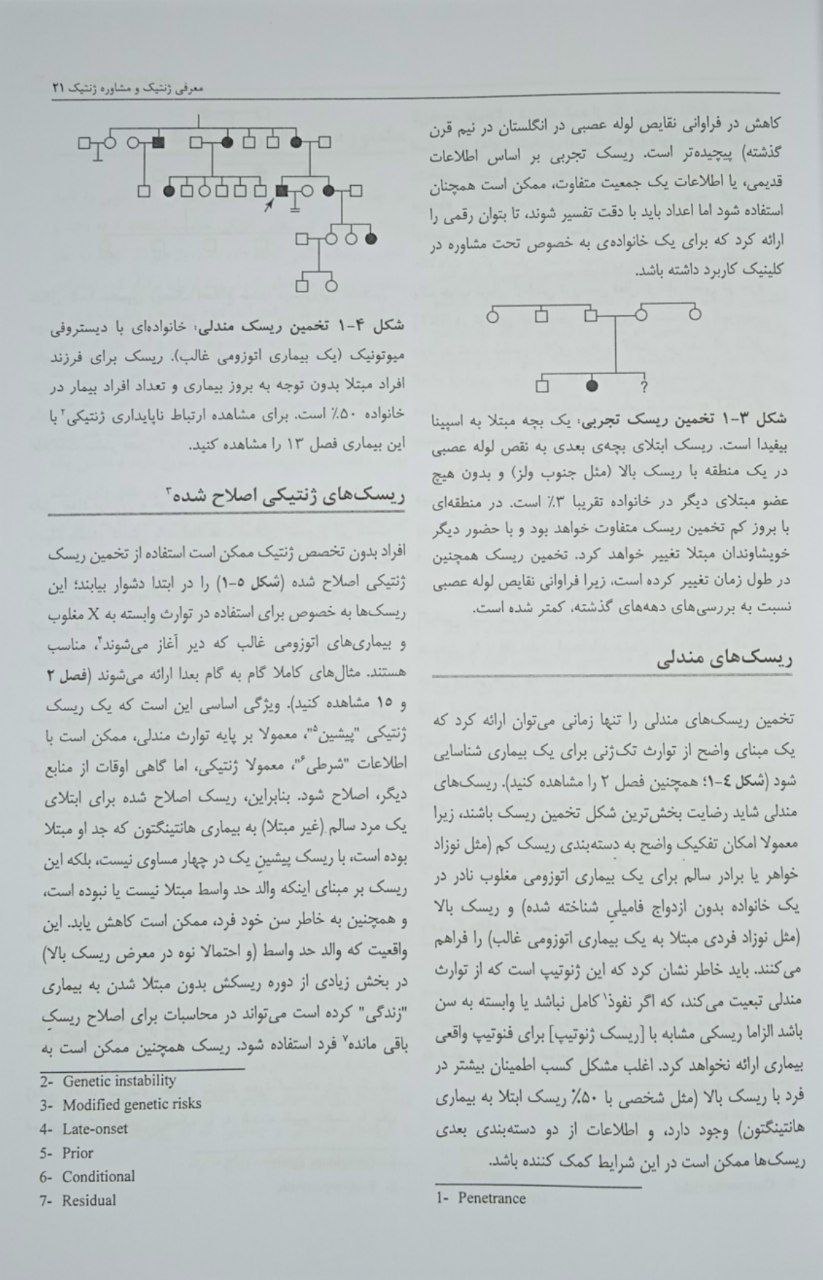 معرفی ژنتیک و مشاوره ژنتیک ۲۱
کاهش در فراوانی نقایص لوله عصبی در انگلستان در نیم قرن
گذشته) پیچیده‌تر است. ریسک تجربی بر اساس اطلاعات
قدیمی، یا اطلاعات یک جمعیت متفاوت، ممکن است همچنان
استفاده شود اما اعداد باید با دقت تفسیر شوند، تا بتوان رقمی را
ارائه کرد که برای یک خانواده‌ی به خصوص تحت مشاوره در
کلینیک کاربرد داشته باشد.
?
شکل ۳-۱ تخمین ریسک تجربی: یک بچه مبتلا به اسپینا
بیفیدا است. ریسک ابتلای بچه‌ی بعدی به نقص لوله عصبی
در یک منطقه با ریسک بالا (مثل جنوب ولز) و بدون هیچ
عضو مبتلای دیگر در خانواده تقریبا ۳٪ است. در منطقه‌ای
با بروز کم تخمین ریسک متفاوت خواهد بود و با حضور دیگر
خویشاوندان مبتلا تغییر خواهد کرد. تخمین ریسک همچنین
در طول زمان تغییر کرده است، زیرا فراوانی نقایص لوله عصبی
نسبت به بررسی‌های دهه‌های گذشته، کمتر شده است.
ریسک‌های مندلی
تخمین ریسک‌های مندلی را تنها زمانی می‌توان ارائه کرد که
یک مبنای واضح از توارث تک‌ژنی برای یک بیماری شناسایی
شود (شکل ۴-۱؛ همچنین فصل ۲ را مشاهده کنید). ریسک‌های
مندلی شاید رضایت بخش‌ترین شکل تخمین ریسک باشند، زیرا
معمولا امکان تفکیک واضح به دسته‌بندی ریسک کم (مثل نوزاد
خواهر یا برادر سالم برای یک بیماری اتوزومی مغلوب نادر در
یک خانواده بدون ازدواج فامیلیِ شناخته شده) و ریسک بالا
(مثل نوزاد فردی مبتلا به یک بیماری اتوزومی غالب) را فراهم
می‌کنند. باید خاطر نشان کرد که این ژنوتیپ است که از توارث
مندلی تبعیت می‌کند، که اگر نفوذ۱ کامل نباشد یا وابسته به سن
باشد الزاما ریسکی مشابه با [ریسک ژنوتیپ] برای فنوتیپ واقعی
بیماری ارائه نخواهد کرد. اغلب مشکل کسب اطمینان بیشتر در
فرد با ریسک بالا (مثل شخصی با ۵۰٪ ریسک ابتلا به بیماری
هانتینگتون) وجود دارد، و اطلاعات از دو دسته‌بندی بعدی
ریسک‌ها ممکن است در این شرایط کمک کننده باشد.
1- Penetrance
شکل ۴-۱ تخمین ریسک مندلی: خانواده‌ای با دیستروفی
میوتونیک (یک بیماری اتوزومی غالب). ریسک برای فرزند
افراد مبتلا بدون توجه به بروز بیماری و تعداد افراد بیمار در
خانواده ۵۰٪ است. برای مشاهده ارتباط ناپایداری ژنتیکی۲ با
این بیماری فصل ۱۳ را مشاهده کنید.
ریسک‌های ژنتیکی اصلاح شده۳
افراد بدون تخصص ژنتیک ممکن است استفاده از تخمین ریسک
ژنتیکی اصلاح شده (شکل ۵-۱) را در ابتدا دشوار بیابند؛ این
ریسک‌ها به خصوص برای استفاده در توارث وابسته به X مغلوب
و بیماری‌های اتوزومی غالب که دیر آغاز می‌شوند۴، مناسب
هستند. مثال‌های کاملا گام به گام بعدا ارائه می‌شوند (فصل ۲
و ۱۵ مشاهده کنید). ویژگی اساسی این است که یک ریسک
ژنتیکی "پیشین۵"، معمولا بر پایه توارث مندلی، ممکن است با
اطلاعات "شرطی۶"، معمولا ژنتیکی، اما گاهی اوقات از منابع
دیگر، اصلاح شود. بنابراین، ریسک اصلاح شده برای ابتلای
یک مرد سالم (غیر مبتلا) به بیماری هانتینگتون که جد او مبتلا
بوده است، با ریسک پیشینِ یک در چهار مساوی نیست، بلکه این
ریسک بر مبنای اینکه والد حد واسط مبتلا نیست یا نبوده است،
و همچنین به خاطر سن خود فرد، ممکن است کاهش یابد. این
واقعیت که والد حد واسط (و احتمالا نوه در معرض ریسک بالا)
در بخش زیادی از دوره ریسکش بدون مبتلا شدن به بیماری
"زندگی" کرده است می‌تواند در محاسبات برای اصلاح ریسکِ
باقی مانده۷ فرد استفاده شود. ریسک همچنین ممکن است به
2- Genetic instability
3- Modified genetic risks
4- Late-onset
5- Prior
6- Conditional
7- Residual